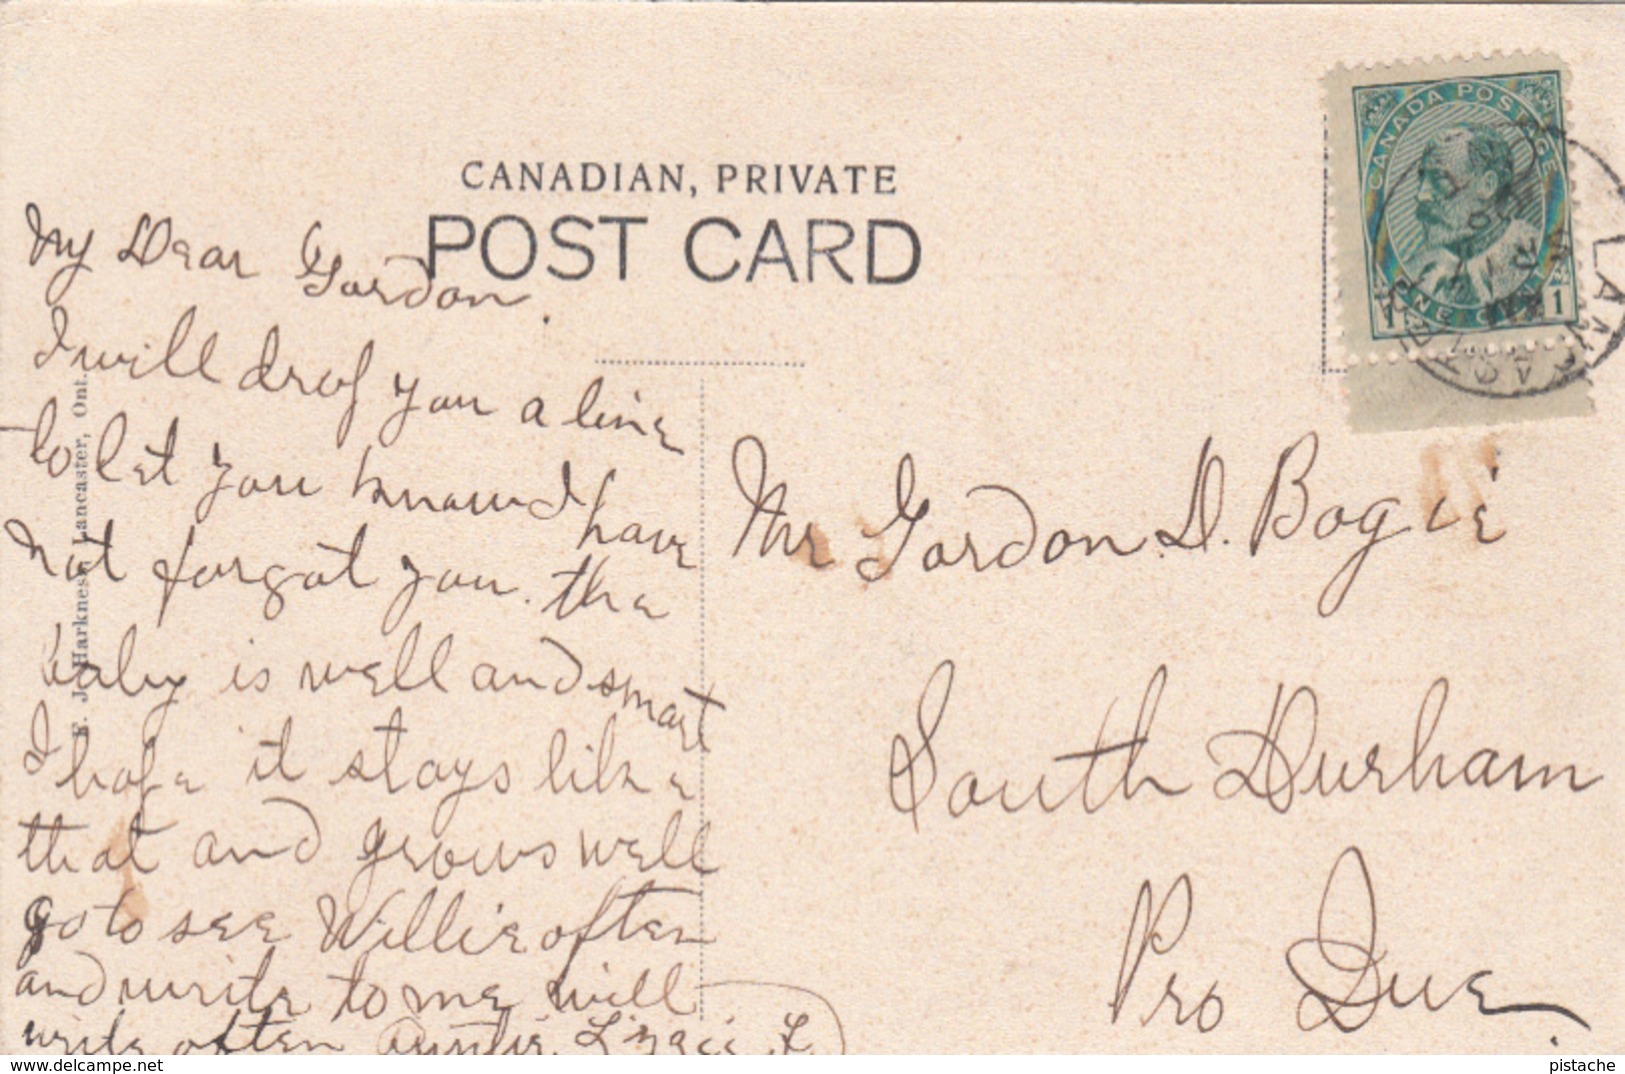 CANADIAN, PRIVATE
POST CARD
CANADA POSTAGE
1 1
LAN
E. J. Harkness, Lancaster, Ont.
My Dear Gordon.
I will drop you a line
to let you know I have
not forgot you. the
baby is well and smart
I hope it stays like
that and grows well
go to see Willie often
and write to me will
write often Auntie Lizzie L
Mr Gordon D. Bogie
South Durham
Pro Que.
delcampe.net
pistache